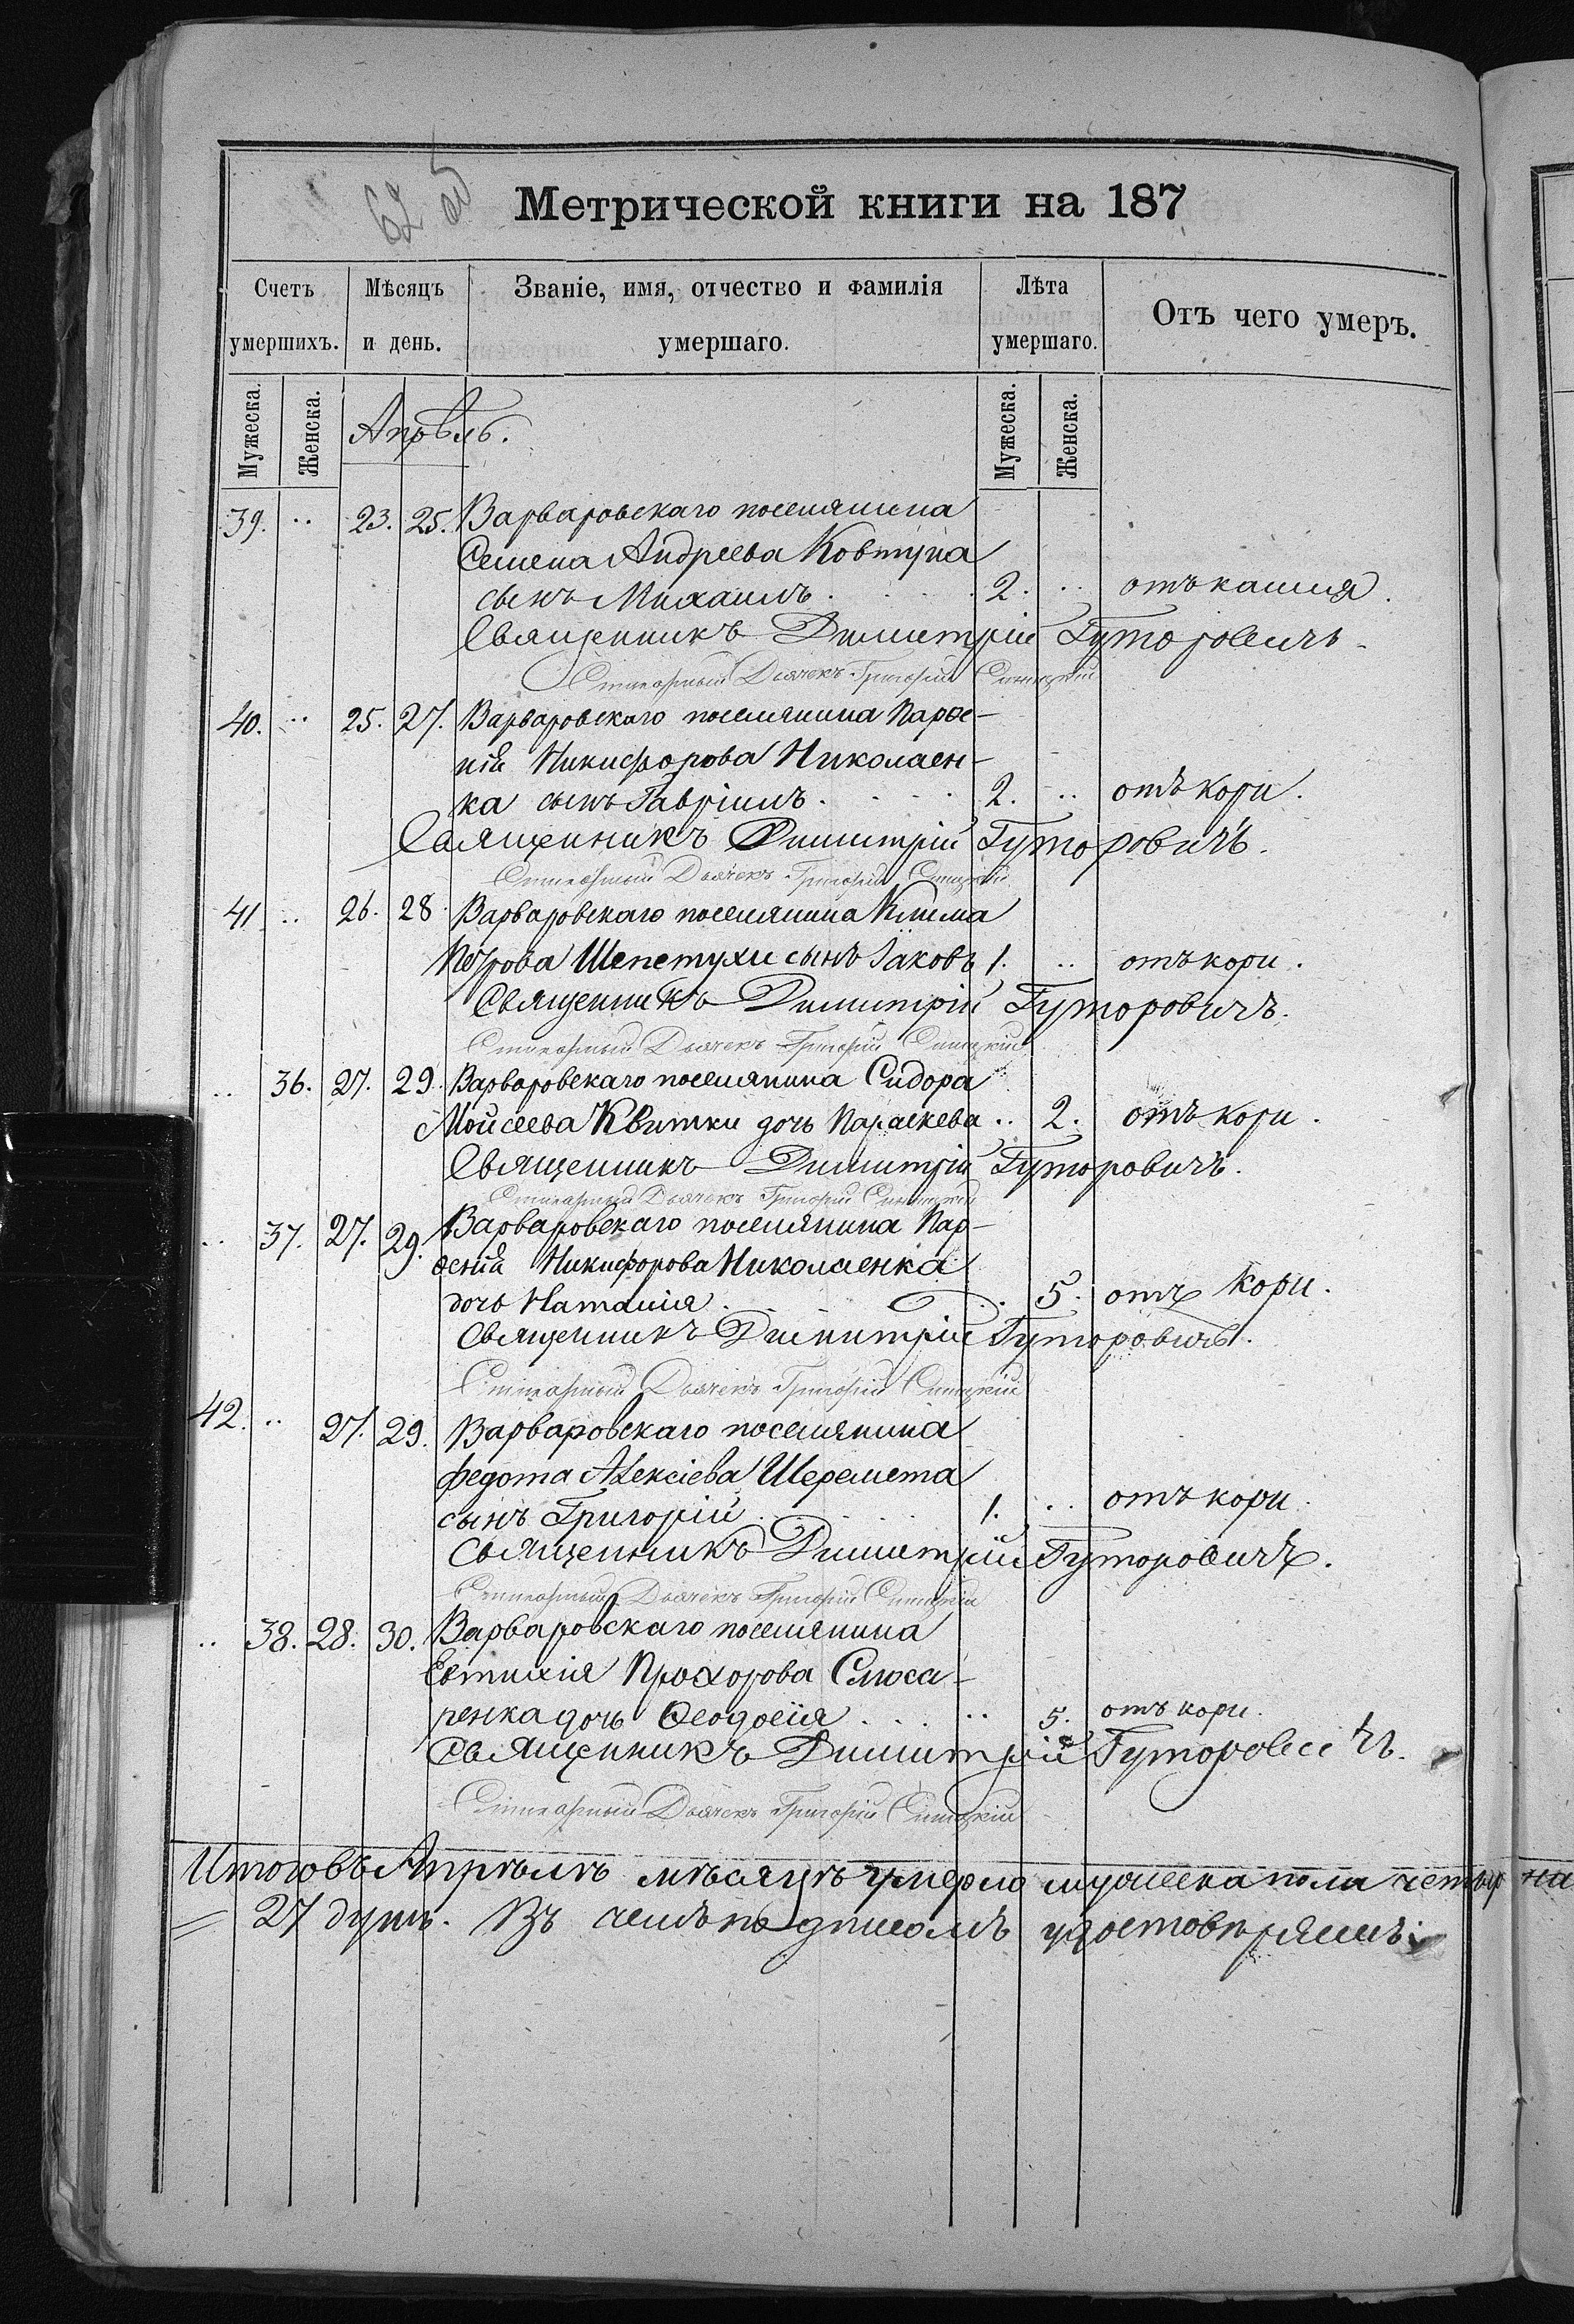 62 об
Метрической книги на 187
Счетъ умершихъ. Мѣсяцъ и день. Званіе, имя, отчество и фамилія умершаго. Лѣта умершаго. Отъ чего умеръ.
Мужеска. Женска. Мужеска. Женска.
Апрѣль.
39. .. 23. 25. Варваровскаго поселянина
Семена Андреева Ковтуна
сынъ Михаилъ. 2. .. отъ кашля.
Священникъ Димитрій Гуторовичъ.
Стихарный Дьячекъ Григорій Синицкій
40. .. 25. 27. Варваровскаго поселянина Парѳе-
нія Никифорова Николаен-
ка сынъ Гавріилъ. 2. .. отъ кори.
Священникъ Димитрій Гуторовичъ.
Стихарный Дьячекъ Григорій Синицкій
41 .. 26. 28. Варваровскаго поселянина Клима
Петрова Шепетухи сынъ Іаковъ 1. .. отъ кори.
Священникъ Димитрій Гуторовичъ.
Стихарный Дьячекъ Григорій Синицкій
.. 36. 27. 29. Варваровскаго поселянина Сидора
Мойсеева Квитки дочь Параскева .. 2. отъ кори.
Священникъ Димитрій Гуторовичъ.
Стихарный Дьячекъ Григорій Синицкій
.. 37. 27. 29. Варваровскаго поселянина Пар-
ѳенія Никифорова Николаенка
дочь Наталія. .. 5. отъ кори.
Священникъ Димитрій Гуторовичъ.
Стихарный Дьячекъ Григорій Синицкій
42. .. 27. 29. Варваровскаго поселянина
Федота Алексіева Шеремета
сынъ Григорій. 1. .. отъ кори.
Священникъ Димитрій Гуторовичъ.
Стихарный Дьячекъ Григорій Синицкій
.. 38. 28. 30. Варваровскаго поселянина
Евтихія Прохорова Слюса-
ренка дочь Ѳеодосія. .. 5. отъ кори.
Священникъ Димитрій Гуторовичъ.
Стихарный Дьячекъ Григорій Синицкій
Итого въ Апрѣлѣ мѣсяцѣ умерло мужеска пола четыр на
= 27 душъ. Въ чемъ подписомъ удостовѣряемъ: